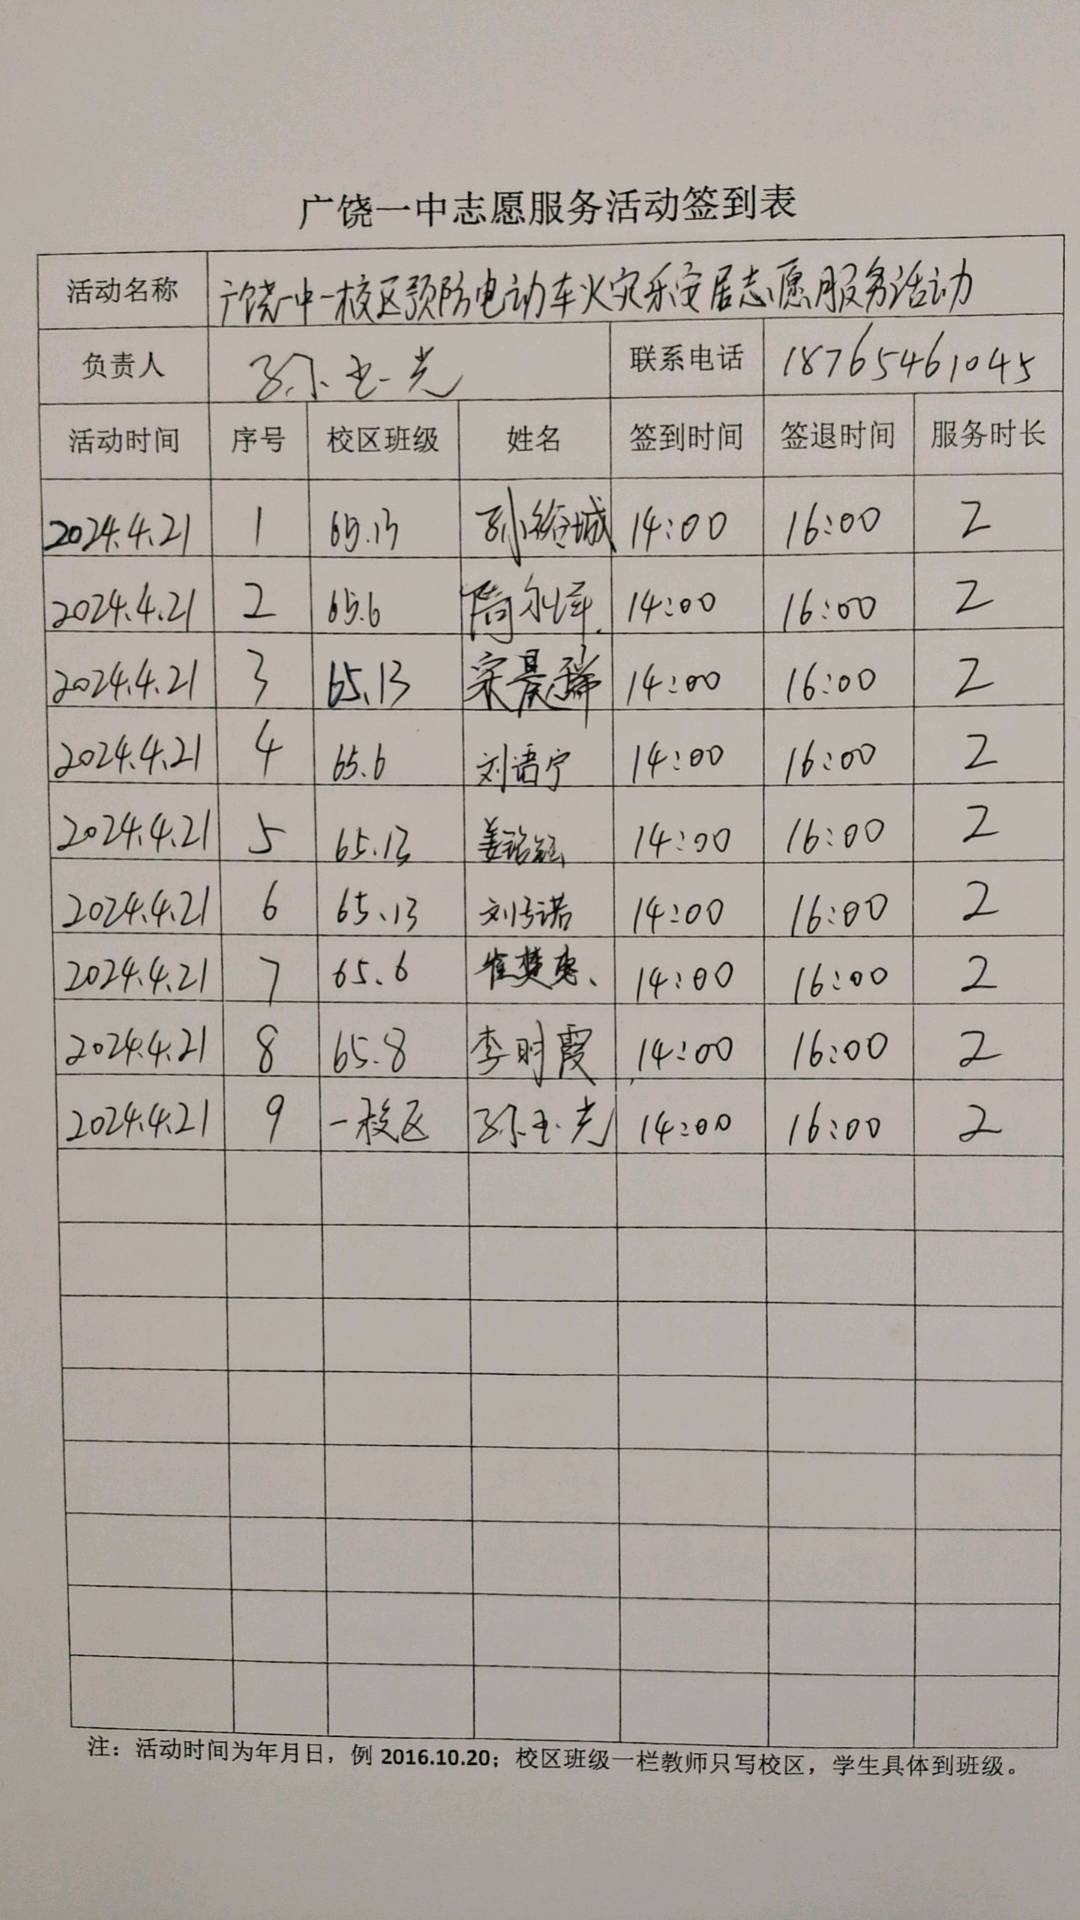 广饶一中志愿服务活动签到表
活动名称 广饶一中一校区预防电动车火灾乐安居志愿服务活动
负责人 孙玉光 联系电话 18765461045
活动时间 序号 校区班级 姓名 签到时间 签退时间 服务时长
2024.4.21 1 65.13 孙城 14:00 16:00 2
2024.4.21 2 65.6 14:00 16:00 2
2024.4.21 3 65.13 宋晨 14:00 16:00 2
2024.4.21 4 65.6 刘语宁 14:00 16:00 2
2024.4.21 5 65.13 姜铭钰 14:00 16:00 2
2024.4.21 6 65.13 刘诺 14:00 16:00 2
2024.4.21 7 65.6 崔楚惠 14:00 16:00 2
2024.4.21 8 65.8 李时霞 14:00 16:00 2
2024.4.21 9 一校区 孙玉光 14:00 16:00 2
注：活动时间为年月日，例 2016.10.20；校区班级一栏教师只写校区，学生具体到班级。